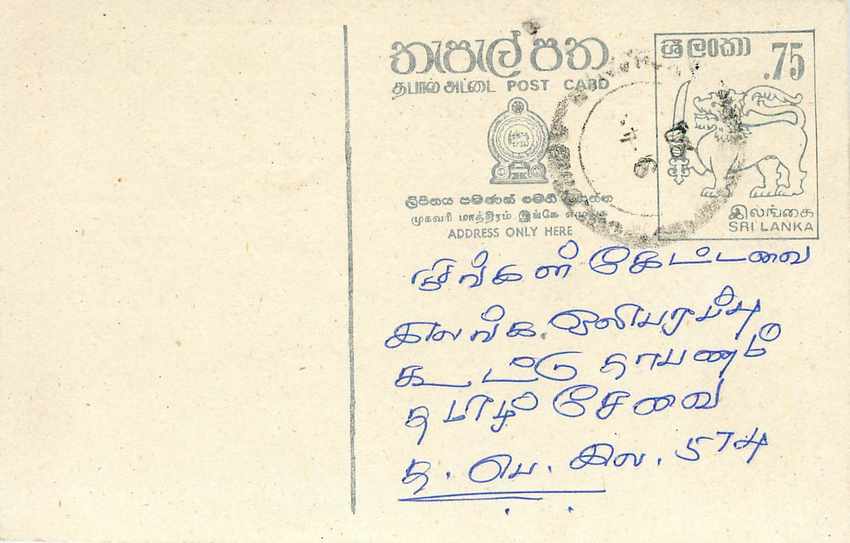 තැපැල් පත
ශ්‍රී ලංකා
.75
தபால் அட்டை POST CARD
ලිපිනය පමණක් මෙහි ලියන්න
முகவரி மாத்திரம் இங்கே எழுதுக
ADDRESS ONLY HERE
இலங்கை
SRI LANKA
நீங்கள் கேட்டவை
இலங்கை ஒலிபரப்பு
கூட்டு தாபனம்
தமிழ் சேவை
த. பெ. இல. 574